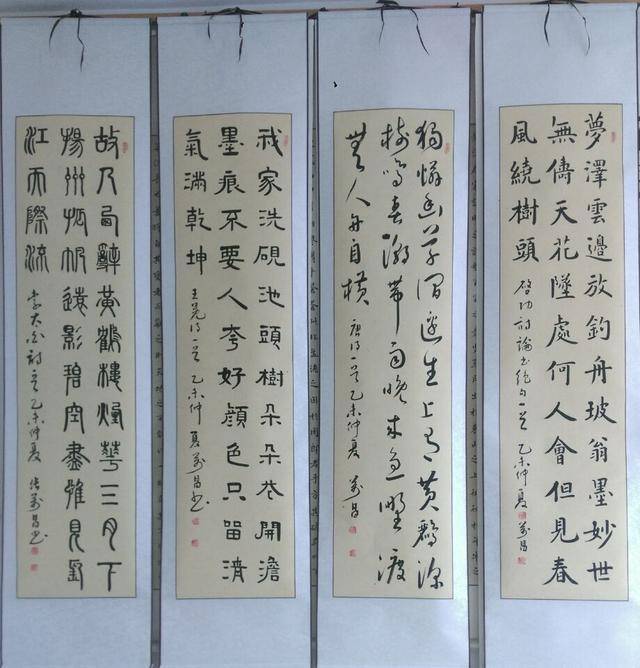 夢澤雲邊放釣舟坡翁墨妙世
無儔天花墜處何人會但見春
風繞樹頭
啓功詩論書絕句一首 乙未仲夏 萬昌
獨憐幽草澗邊生上有黃鸝深
樹鳴春潮帶雨晚來急野渡
無人舟自橫
唐詩一首 乙未仲夏 萬昌
我家洗硯池頭樹朵朵花開澹
墨痕不要人夸好顏色只留清
氣滿乾坤
王冕詩一首 乙未仲夏萬昌書
故人西辭黃鶴樓煙華三月下
揚州孤帆遠影碧空盡惟見長
江天際流
李太白詩一首 乙未仲夏 張萬昌書